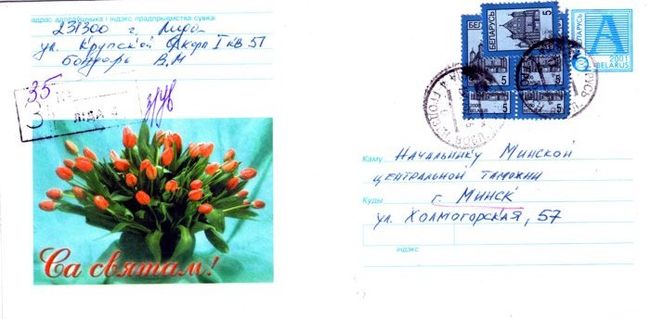 адрас адпраўшчыка і індэкс прадпрыемства сувязі
231300 г. Лида
ул. Крупской
кв 57
Бондарь В.М
35
ЛІДА 4
Са святам!
БЕЛАРУСЬ
5
5
5
5
5
A
2001
BELARUS
Каму Начальнику Минской
центральной таможни
Куды г. Минск
ул. Холмогорская, 57
індэкс